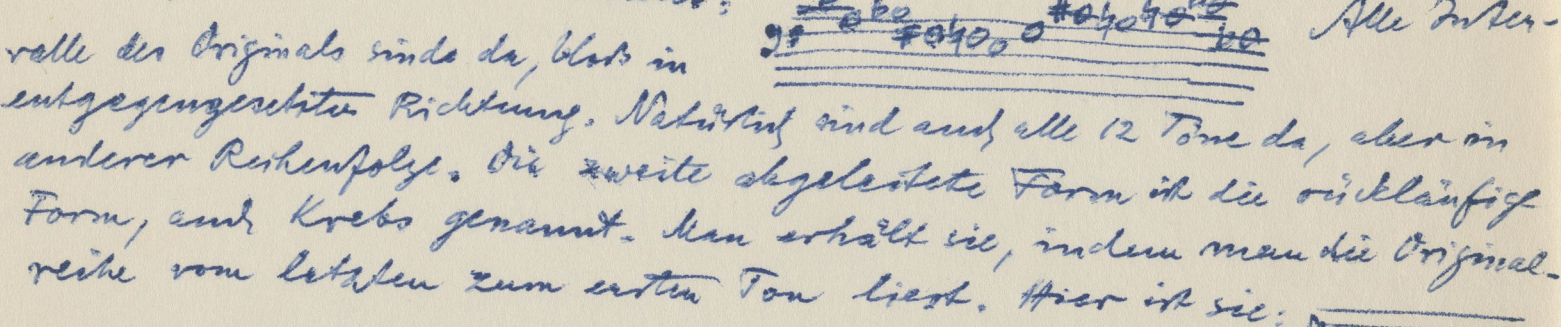 Alle Inter-
valle des Originals sind da, bloß in
entgegengesetzter Richtung. Natürlich sind auch alle 12 Töne da, aber in
anderer Reihenfolge. Die zweite abgeleitete Form ist die rückläufige
Form, auch Krebs genannt. Man erhält sie, indem man die Original-
reihe vom letzten zum ersten Ton liest. Hier ist sie: